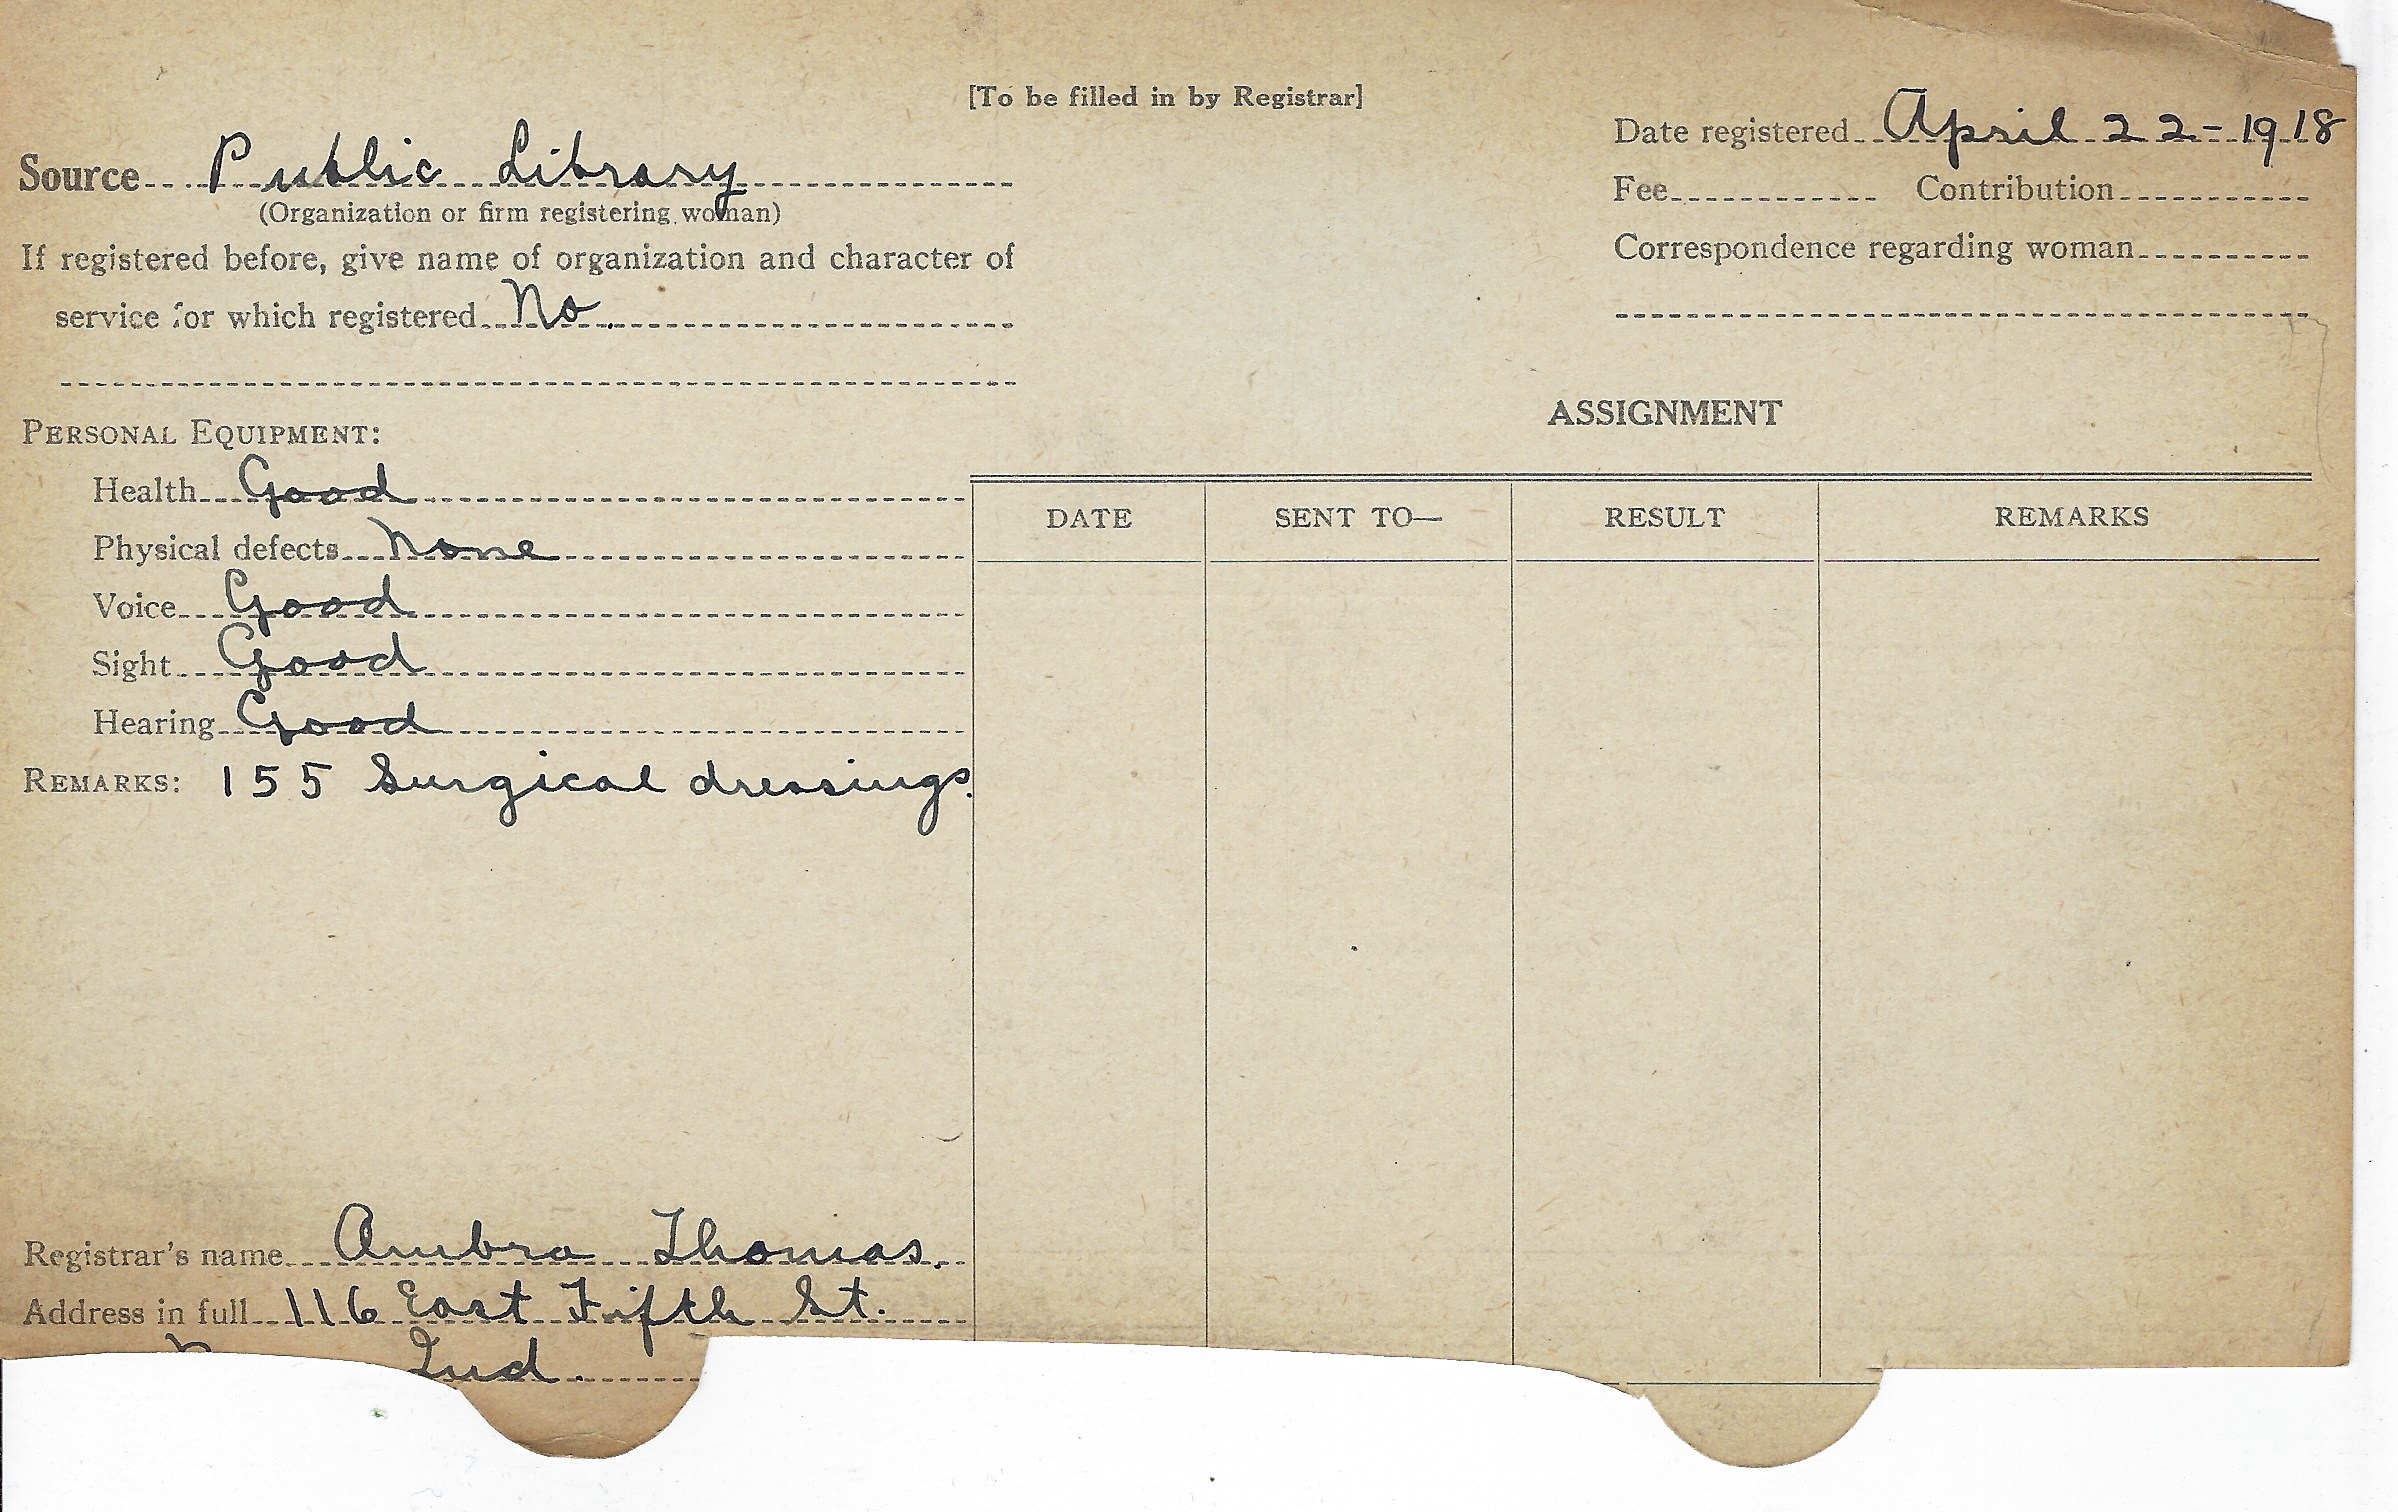 [To be filled in by Registrar]
Source Public Library
(Organization or firm registering woman)
If registered before, give name of organization and character of
service for which registered No.
Date registered April 22-1918
Fee Contribution
Correspondence regarding woman
PERSONAL EQUIPMENT:
Health Good
Physical defects None
Voice Good
Sight Good
Hearing Good
REMARKS: 155 Surgical dressings.
Registrar's name Ambra Thomas.
Address in full 116 East Fifth St.
Ind.
ASSIGNMENT
DATE SENT TO— RESULT REMARKS